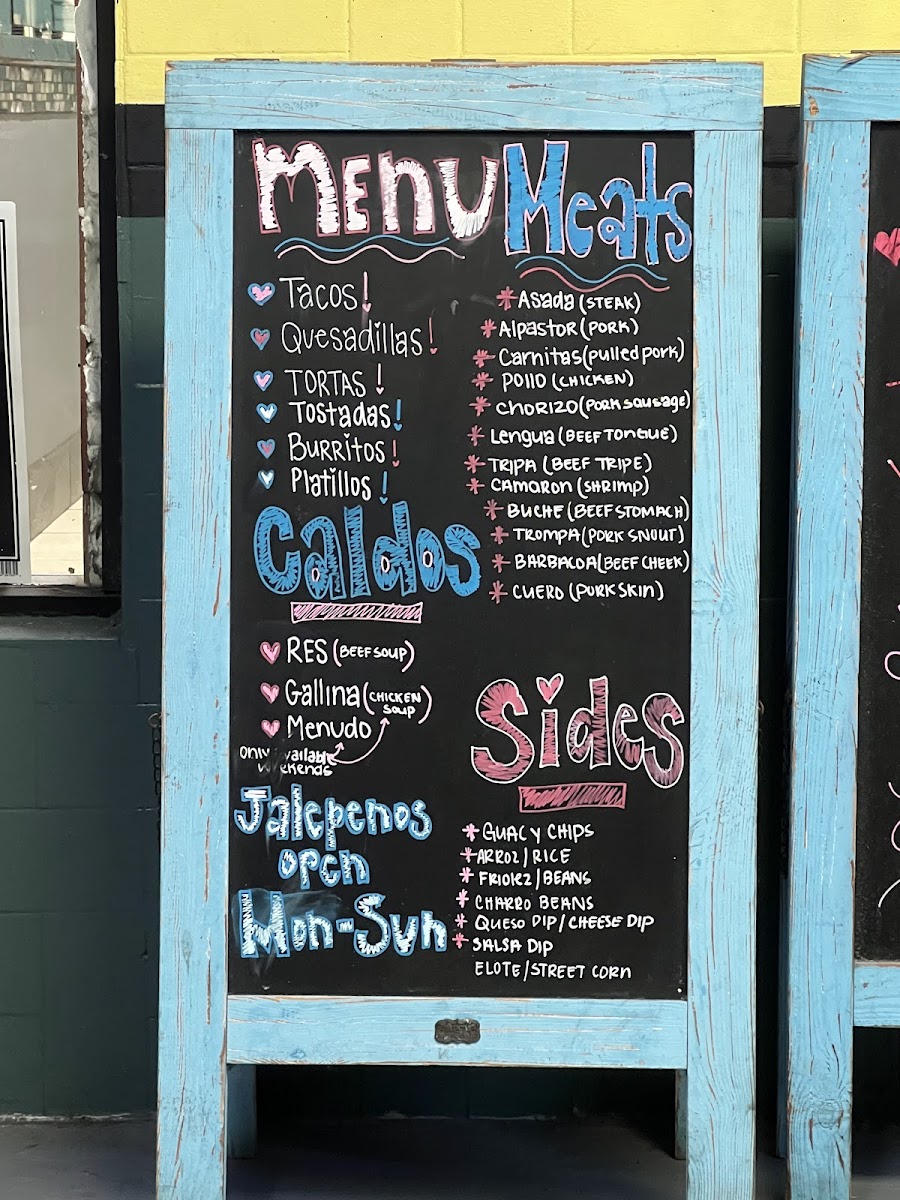 Menu
Tacos!
Quesadillas!
TORTAS!
Tostadas!
Burritos!
Platillos!
Caldos
RES (BEEF SOUP)
Gallina (CHICKEN
SOUP)
Menudo
only available
weekends
Jalepenos
open
Mon-Sun
Meats
* Asada (STEAK)
* Alpastor (PORK)
* Carnitas (pulled pork)
* POLLO (CHICKEN)
* CHORIZO (PORK SAUSAGE)
* Lengua (BEEF TONGUE)
* TRIPA (BEEF TRIPE)
* CAMARON (SHRIMP)
* BUCHE (BEEF STOMACH)
* TROMPA (PORK SNOUT)
* BARBACOA (BEEF CHEEK)
* CUERO (PORK SKIN)
Sides
* GUAC Y CHIPS
* ARROZ / RICE
* / BEANS
* CHARRO BEANS
* QUESO DIP / CHEESE DIP
* SALSA DIP
ELOTE / STREET CORN